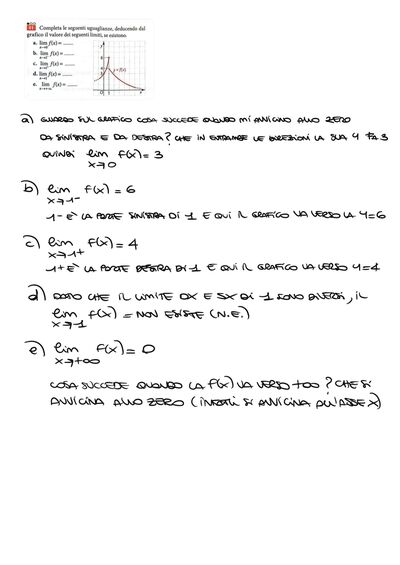 41 Completa le seguenti uguaglianze, deducendo dal
grafico il valore dei seguenti limiti, se esistono.
a. lim f(x) = ........
b. lim f(x) = ........
c. lim f(x) = ........
d. lim f(x) = ........
e. lim f(x) = ........
y = f(x)
a) GUARDO SUL GRAFICO COSA SUCCEDE QUANDO MI AVVICINO ALLO ZERO
DA SINISTRA E DA DESTRA? CHE IN ENTRAMBE LE DIREZIONI LA SUA Y FA 3
QUINDI lim f(x) = 3
x→0
b) lim f(x) = 6
x→1⁻
1⁻ È LA PARTE SINISTRA DI 1 E QUI IL GRAFICO VA VERSO LA Y=6
c) lim f(x) = 4
x→1⁺
1⁺ È LA PARTE DESTRA DI 1 E QUI IL GRAFICO VA VERSO Y=4
d) DATO CHE IL LIMITE DX E SX DI 1 SONO DIVERSI, IL
lim f(x) = NON ESISTE (N.E.)
x→1
e) lim f(x) = 0
x→+∞
COSA SUCCEDE QUANDO LA f(x) VA VERSO +∞? CHE SI
AVVICINA ALLO ZERO (INFATTI SI AVVICINA ALL'ASSE X)